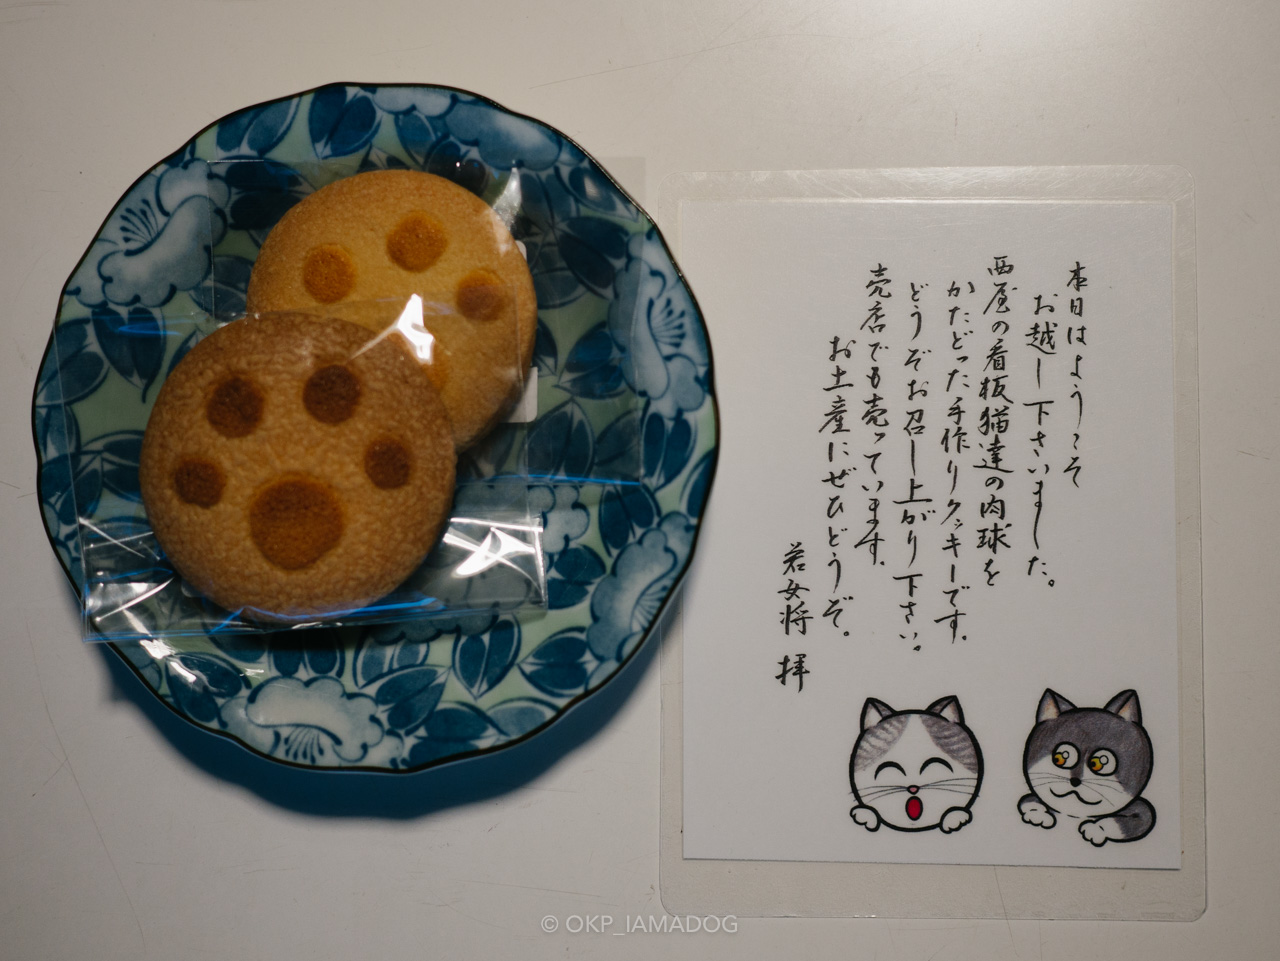 本日はようこそ
お越し下さいました。
西屋の看板猫達の肉球を
かたどった手作りクッキーです。
どうぞお召し上がり下さい。
売店でも売っています。
お土産にぜひどうぞ。
若女将 拝
© OKP_IAMADOG